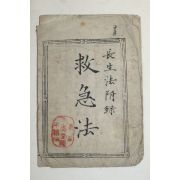 長生法附録
救急法